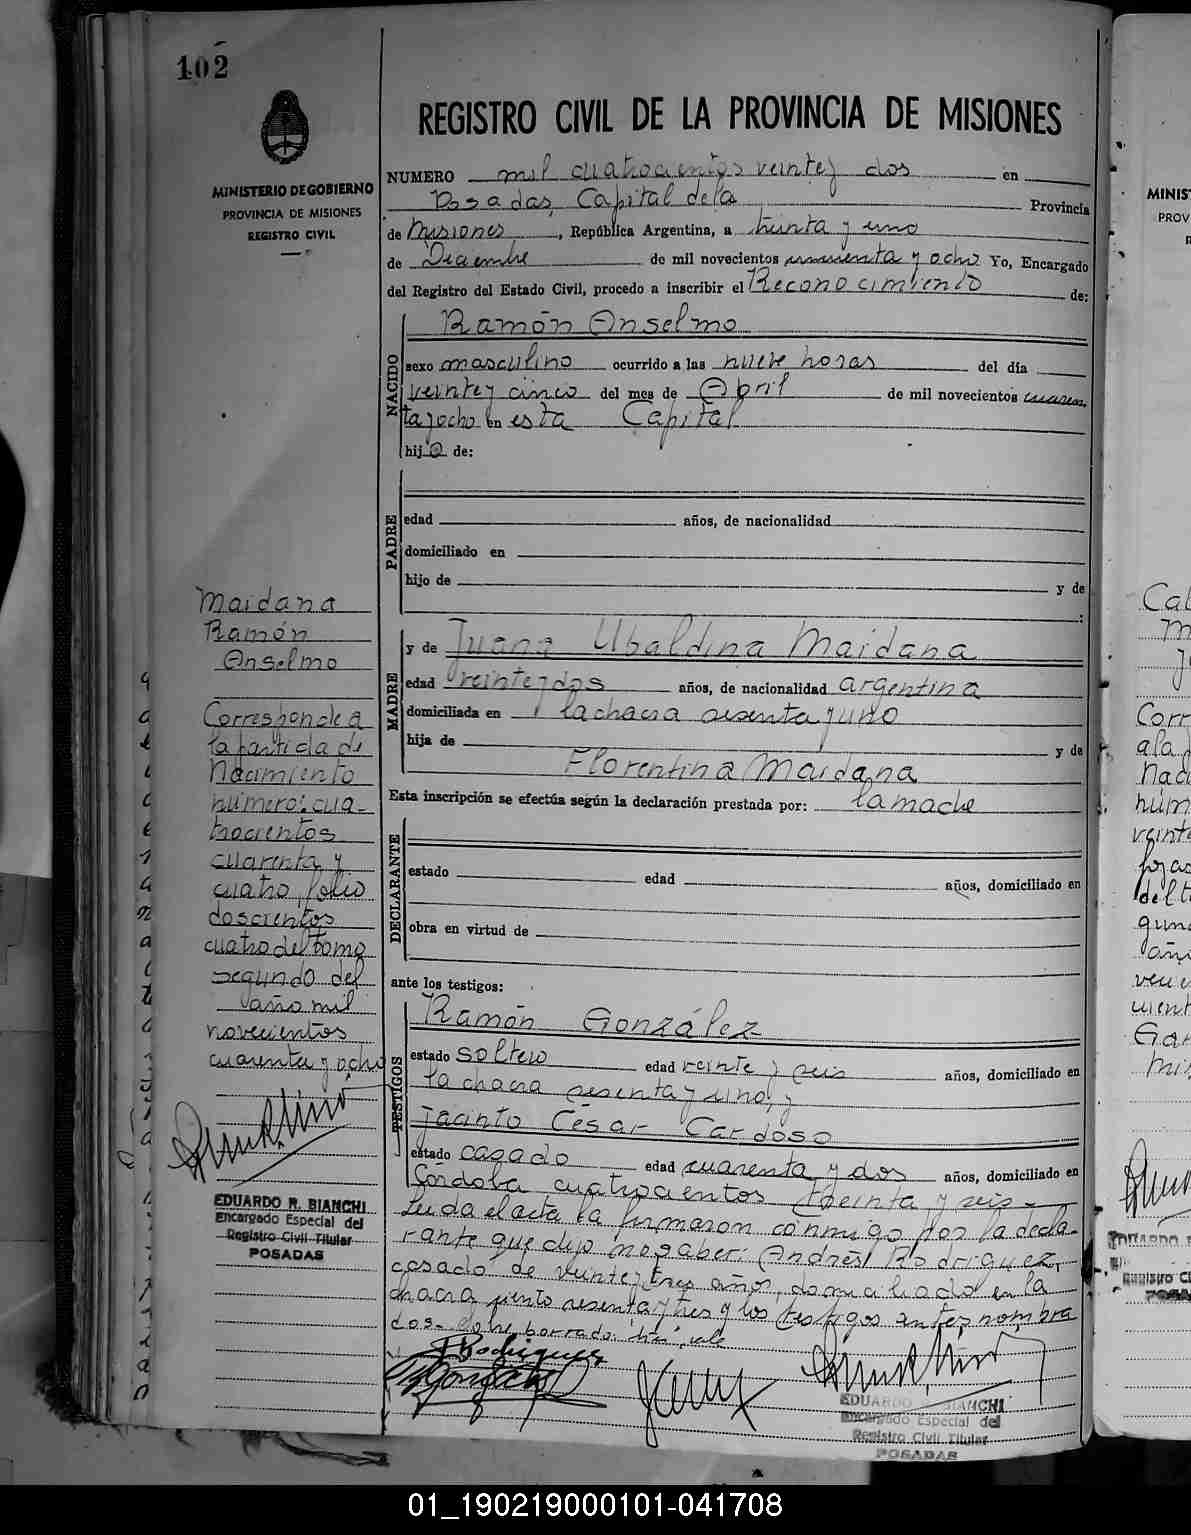 102
MINISTERIO DE GOBIERNO
PROVINCIA DE MISIONES
REGISTRO CIVIL
REGISTRO CIVIL DE LA PROVINCIA DE MISIONES
NUMERO mil cuatrocientos veinte y dos en
Posadas, Capital de la Provincia
de Misiones, República Argentina, a treinta y uno
de Diciembre de mil novecientos cuarenta y ocho Yo, Encargado
del Registro del Estado Civil, procedo a inscribir el Reconocimiento de:
NACIDO
Ramón Anselmo
sexo masculino ocurrido a las nueve horas del día
veinte y cinco del mes de Abril de mil novecientos cuaren
ta y ocho en esta Capital
hijo de:
PADRE
edad años, de nacionalidad
domiciliado en
hijo de y de
:
MADRE
y de Juana Ubaldina Maidana
edad veinte y dos años, de nacionalidad argentina
domiciliada en la chacra sesenta y uno
hija de y de
Florentina Maidana
Esta inscripción se efectúa según la declaración prestada por: la madre
DECLARANTE
estado edad años, domiciliado en
obra en virtud de
ante los testigos:
TESTIGOS
Ramón González
estado soltero edad veinte y seis años, domiciliado en
la chacra sesenta y uno, y
Jacinto César Cardoso
estado casado edad cuarenta y dos años, domiciliado en
Córdoba cuatrocientos treinta y seis-
Leida el acta la firmaron conmigo por la decla-
rante que dijo no saber: Andrés Rodriguez,
casado de veinte y tres años, domiciliado en la
chacra ciento sesenta y tres y los testigos antes nombra
dos- Sobre borrado: vale
Rodriguez
R González
EDUARDO R. BIANCHI
Encargado Especial del
Registro Civil Titular
POSADAS
Maidana
Ramón
Anselmo
Corresponde a
la partida de
Nacimiento
número: cua-
trocientos
cuarenta y
cuatro, folio
doscientos
cuatro del tomo
segundo del
año mil
novecientos
cuarenta y ocho
EDUARDO R. BIANCHI
Encargado Especial del
Registro Civil Titular
POSADAS
MINIS
PROV
Corr
01_190219000101-041708